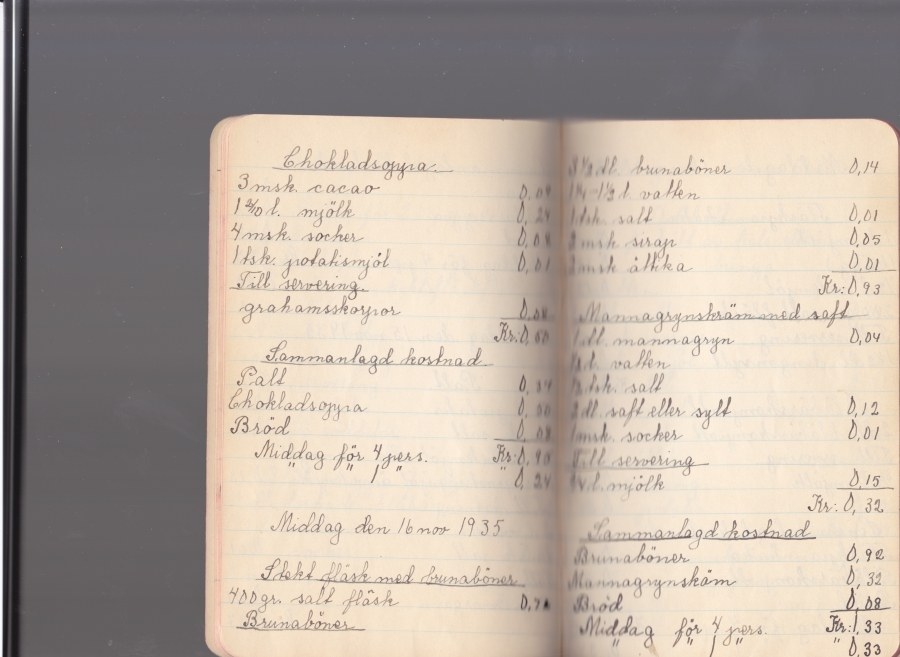 Chokladsoppa.
3 msk. cacao 0,09
1 2/10 l. mjölk 0,24
4 msk. socker 0,08
1 tsk. potatismjöl 0,01
Till servering.
grahamsskorpor 0,08
Kr: 0,50
Sammanlagd kostnad.
Palt
Chokladsoppa
Bröd 0,08
Middag för 4 pers. Kr: 0,
" " 1 " " 0,24
Middag den 16 nov 1935
Stekt fläsk med brunaböner
400 gr. salt fläsk
Brunaböner
3 1/2 dl. brunaböner 0,14
1 1/4-1 1/2 l. vatten
1 tsk. salt 0,01
2 msk sirap 0,05
2 msk ättika 0,01
Kr: 0,93
Mannagrynskräm med saft
1 dl. mannagryn 0,04
l. vatten
1/2 tsk. salt
2 dl. saft eller sylt 0,12
1 msk. socker 0,01
Till servering
l. mjölk 0,15
Kr: 0,32
Sammanlagd kostnad
Brunaböner 0,92
Mannagrynskäm 0,32
Bröd 0,08
Middag för 4 pers. Kr: 1,33
" " 1 " " 0,33